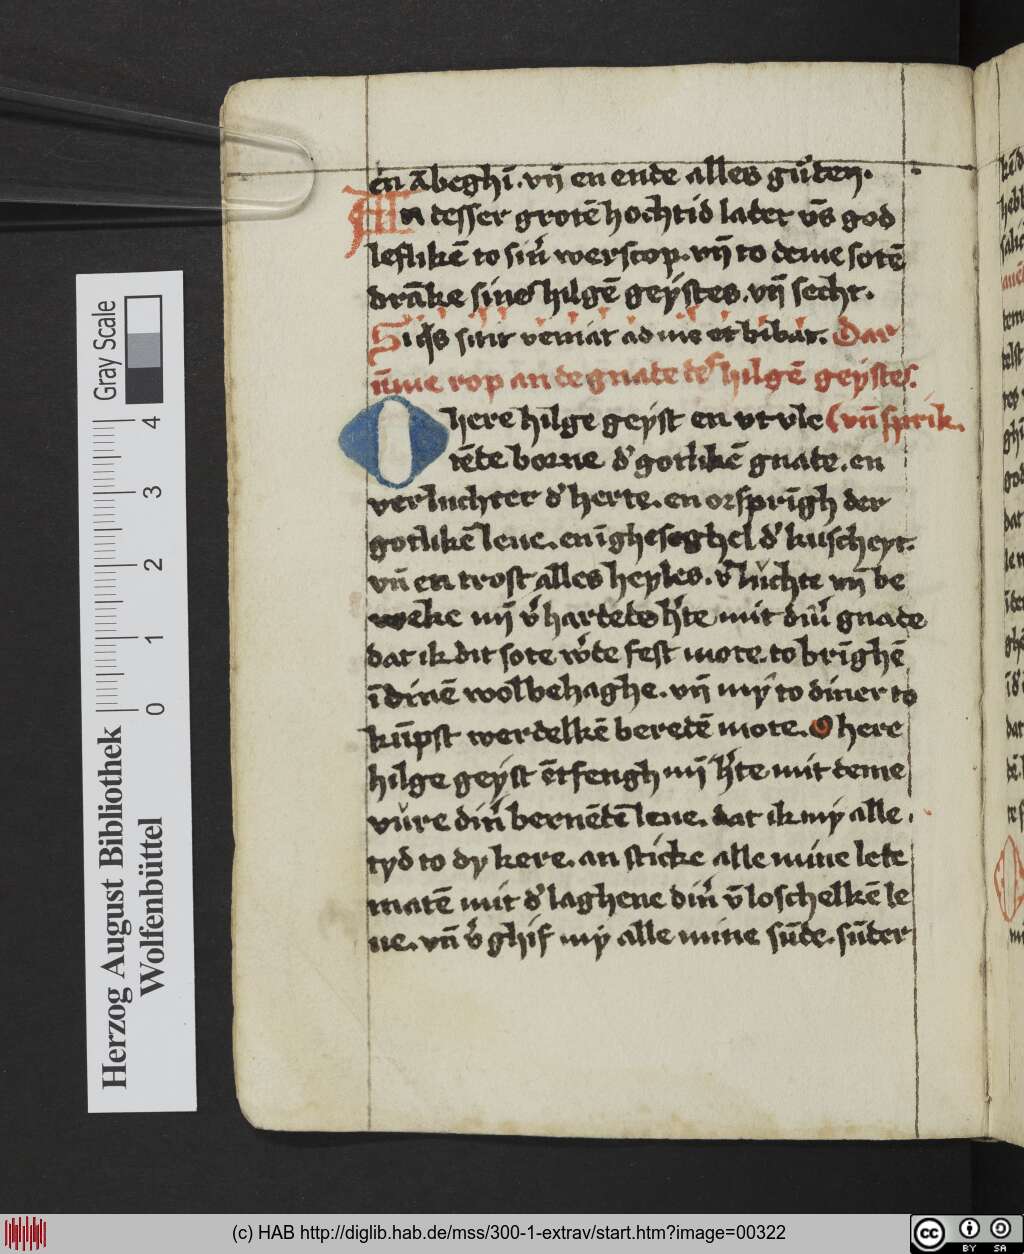 en ābeghī. vn̄ en ende alles gůden.
An desser grotē hochtid ladet vns god
leflikē to sin̛ werscop. vn̄ to deme sotē
drāke sines hilgē geystes. vn̄ secht.
Siq̛s sitit veniat ad me et bibat. Dar
ūme rop an de gnade des hilgē geystes.
O here hilge geyst en vt vle (vn̄ sprik.
tēde borne d̛ gotlikē gnade. en
verluchter d̛ herte. en orsprīgh der
gotlikē leue. en īgheseghel d̛ kuscheyt.
vn̄ en trost alles heyles. v̛luchte mȳ be
weke mȳ v̛hardede h̛te mit din̛ gnade
dat ik dit sote w̛de fest mote. to brīghē
ī dinē wolbehaghe. vn̄ my to diner to
kūpst werdelkē beredē mote. O here
hilge geyst ētfengh mȳ h̛te mit deme
vůre din̛ bernēdē leue. dat ik my alle
tyd to dy kere. an sticke alle mine lede
matē mit d̛ laghene din̛ v̄loschelkē le
ue. vn̄ v̛ghif my alle mine sūde. sūder
Gray Scale
0 1 2 3 4
Herzog August Bibliothek
Wolfenbüttel
(c) HAB http://diglib.hab.de/mss/300-1-extrav/start.htm?image=00322
cc BY SA